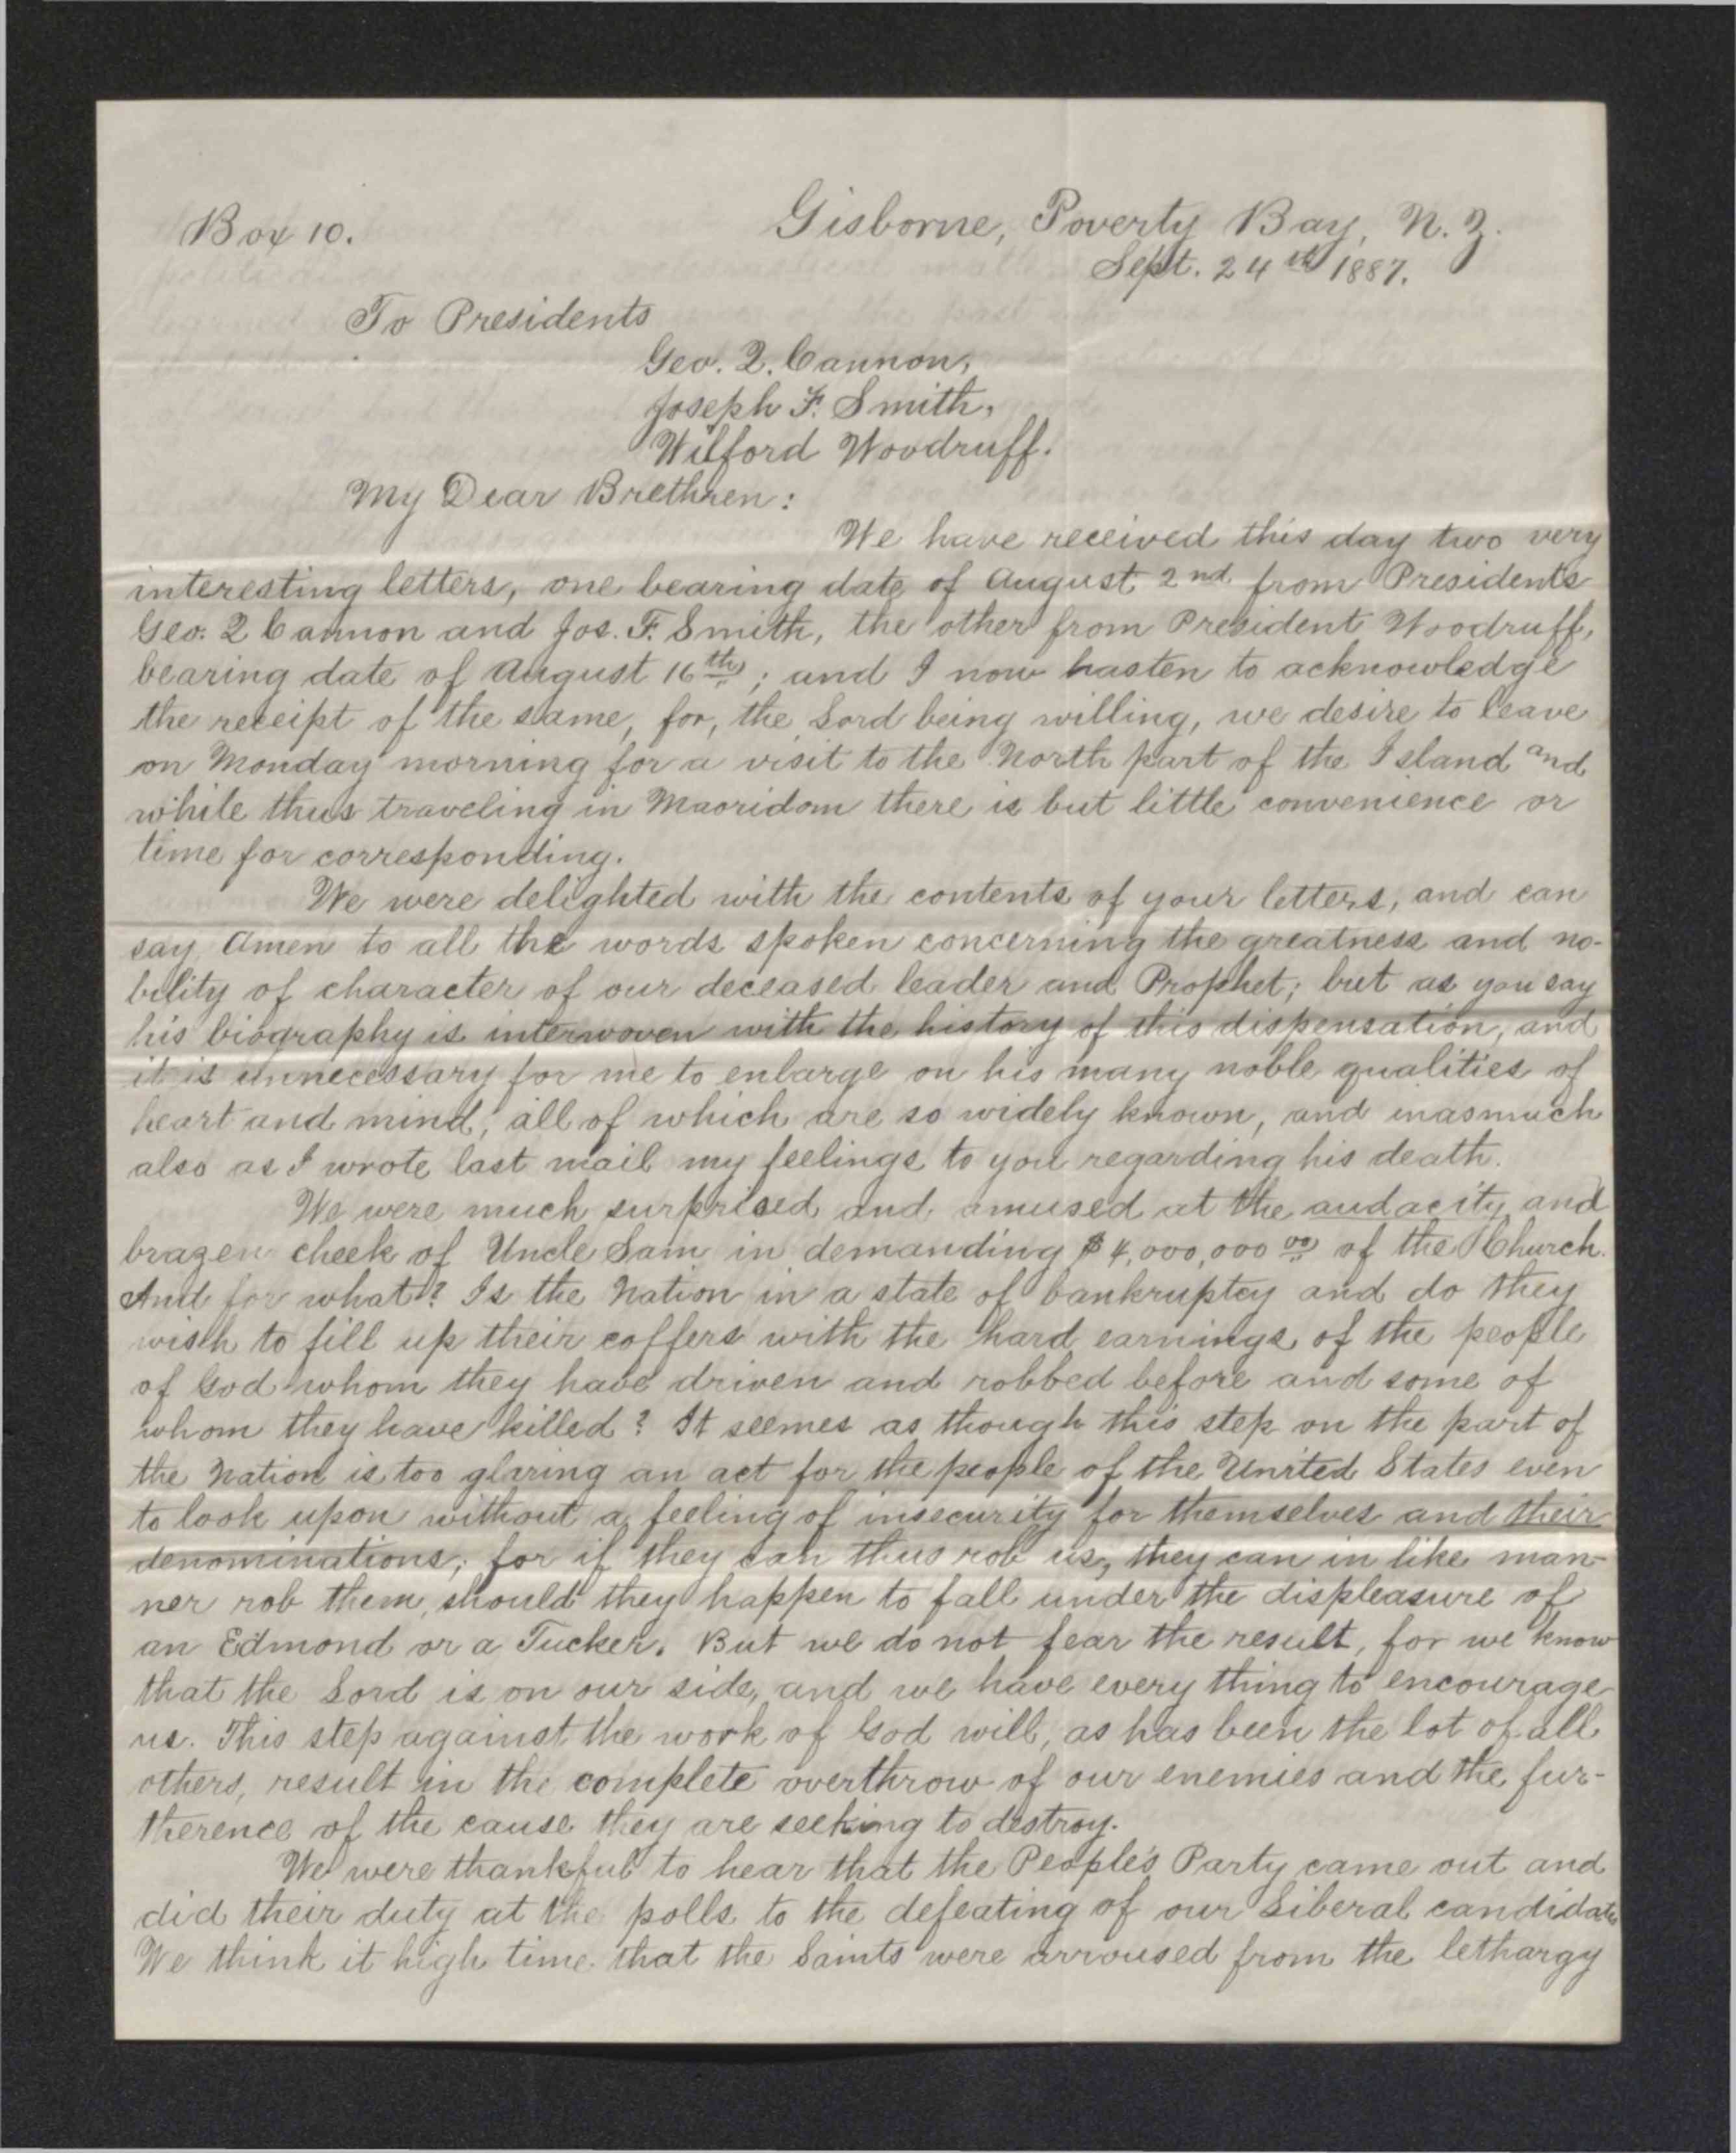 Box 10.
Gisborne, Poverty Bay, N. Z.
Sept. 24th 1887.
To Presidents
Geo. Q. Cannon,
Joseph F. Smith,
Wilford Woodruff.
My Dear Brethren:
We have received this day two very
interesting letters, one bearing date of August 2nd from Presidents
Geo. Q Cannon and Jos. F. Smith, the other from President Woodruff,
bearing date of August 16th; and I now hasten to acknowledge
the receipt of the same, for, the Lord being willing, we desire to leave
on Monday morning for a visit to the North part of the Island and
while thus traveling in Maoridom there is but little convenience or
time for corresponding.
We were delighted with the contents of your letters, and can
say Amen to all the words spoken concerning the greatness and no-
bility of character of our deceased leader and Prophet; but as you say
his biography is interwoven with the history of this dispensation, and
it is unnecessary for me to enlarge on his many noble qualities of
heart and mind, all of which are so widely known, and inasmuch
also as I wrote last mail my feelings to you regarding his death.
We were much surprised and amused at the audacity and
brazen cheek of Uncle Sam in demanding $4,000,000 00 of the Church.
And for what? Is the Nation in a state of bankruptcy and do they
wish to fill up their coffers with the hard earnings of the people
of God whom they have driven and robbed before and some of
whom they have killed? It seemes as though this step on the part of
the Nation is too glaring an act for the people of the United States even
to look upon without a feeling of insecurity for themselves and their
denominations; for if they can thus rob us, they can in like man-
ner rob them, should they happen to fall under the displeasure of
an Edmond or a Tucker. But we do not fear the result, for we know
that the Lord is on our side, and we have every thing to encourage
us. This step against the work of God will, as has been the lot of all
others, result in the complete overthrow of our enemies and the fur-
therence of the cause they are seeking to destroy.
We were thankful to hear that the People's Party came out and
did their duty at the polls to the defeating of our Liberal candidates
We think it high time that the Saints were arroused from the lethargy